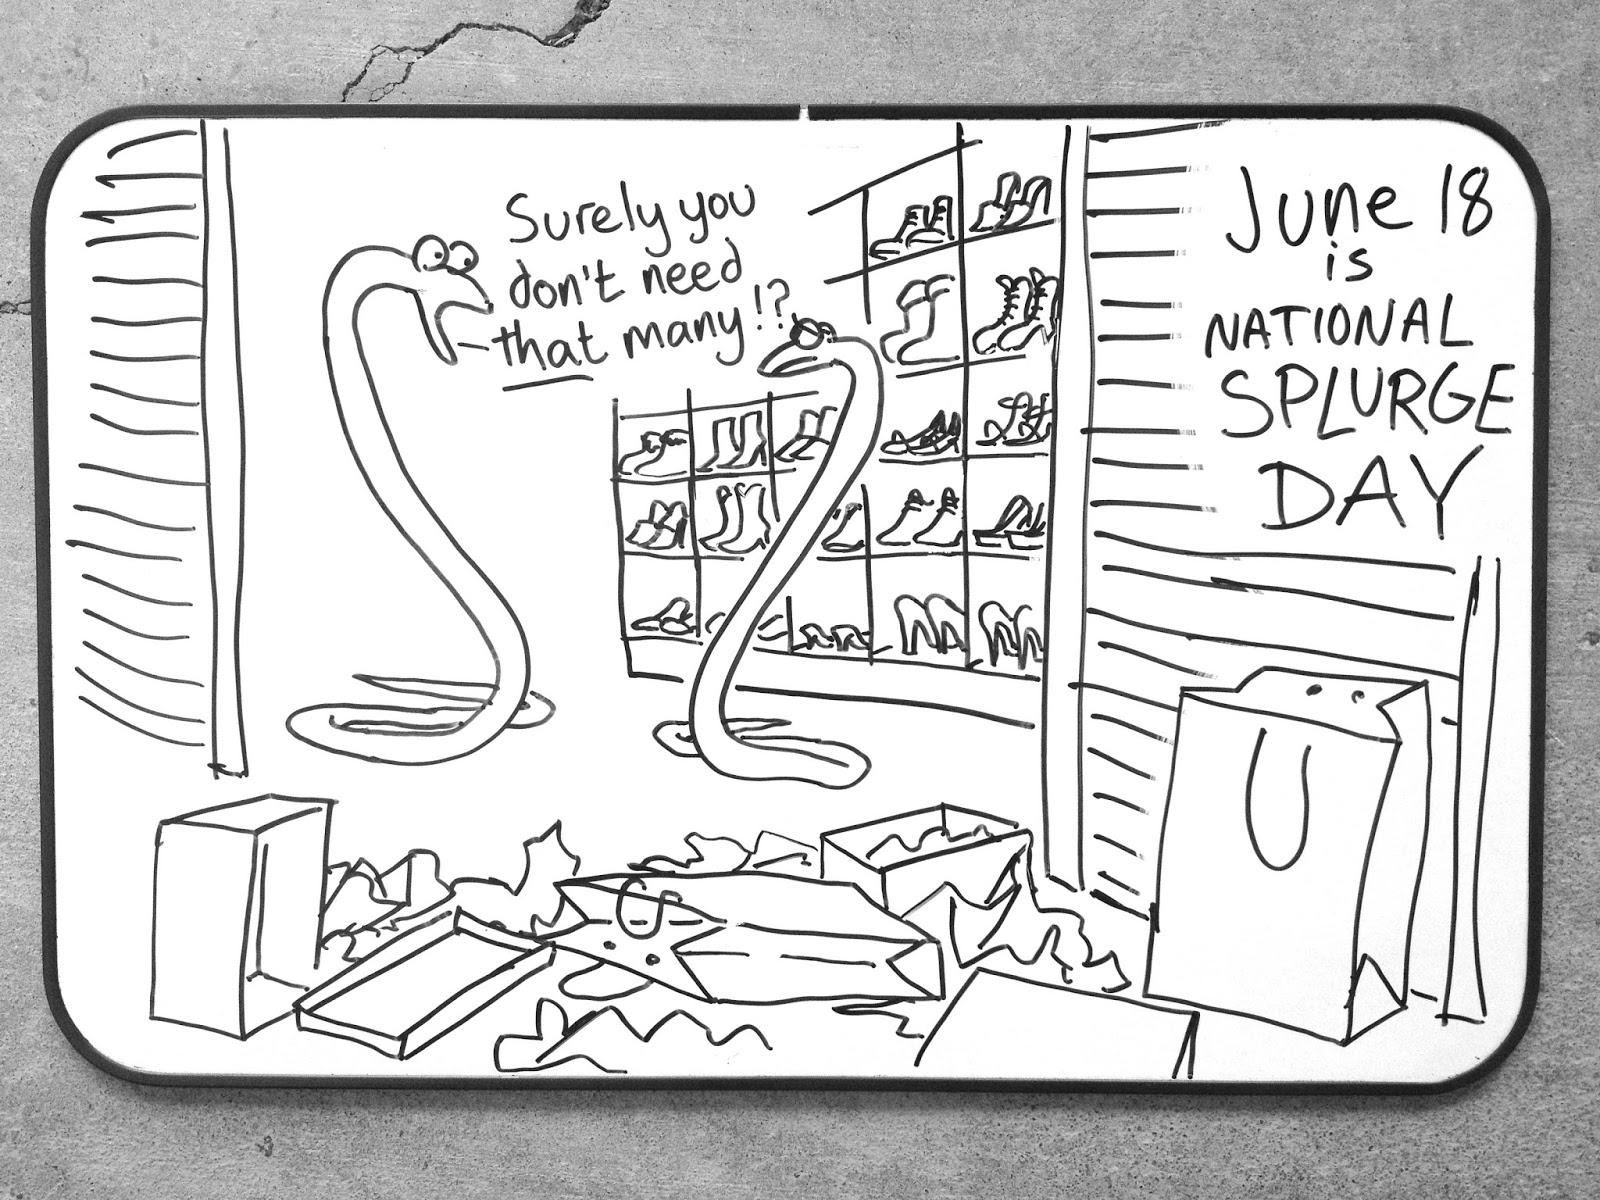 Surely you
don't need
that many!?
June 18
is
NATIONAL
SPLURGE
DAY